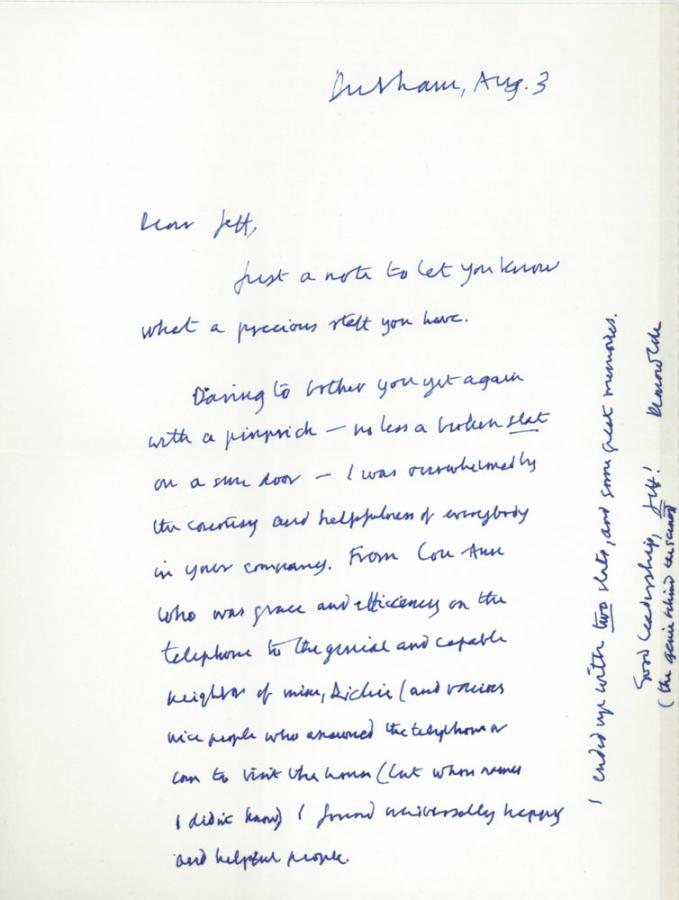 Durham, Aug. 3
Dear Jeff,
Just a note to let you know
what a precious staff you have.
Daring to bother you yet again
with a pinprick — no less a broken slat
on a sun door — I was overwhelmed by
the courtesy and helpfulness of everybody
in your company. From Lou-Ann
who was grace and efficiency on the
telephone to the genial and capable
neighbor of mine, Richie (and various
nice people who answered the telephone or
cam to visit the house (but whose names
I didn't know) I found universally happy
and helpful people.
I ended up with two slats, and some great memories.
Good leadership, Jeff!
(the genie behind the